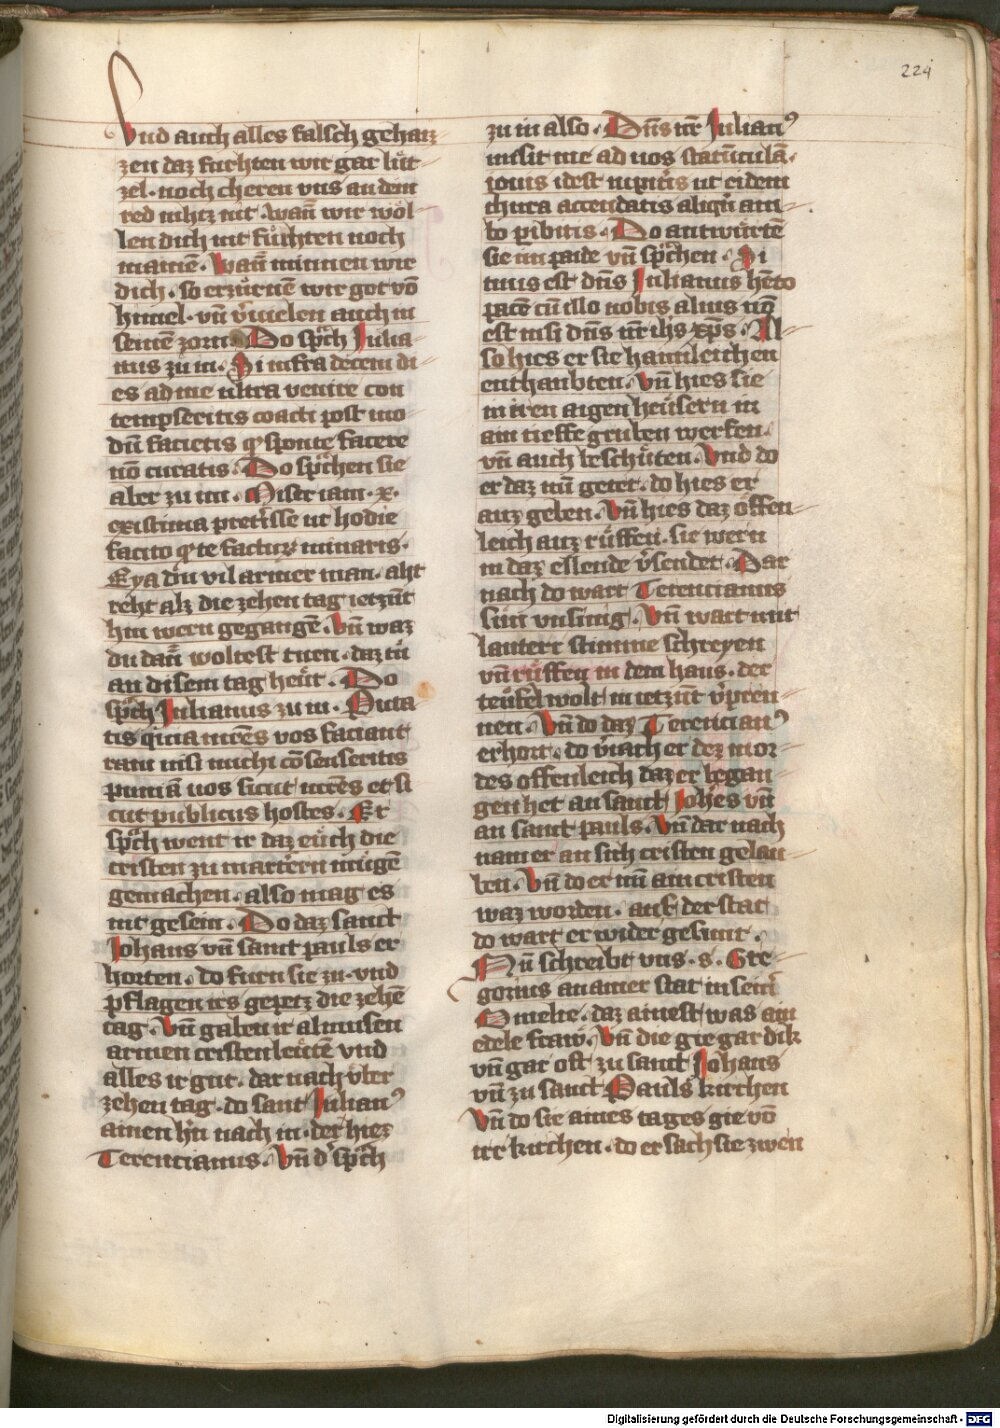 224
Vnd auch alles falsch gehaiz
zen daz furhten wir gar lütt
zel · noch cheren vns an dein
red nihtz nit · wañ wir wöl
len dich nit fürhten noch
mainē · Wañ minnen wir
dich · so erzürnē wir got vō
himel · vñ v̓uielen auch in
seinē zorn · Do sp̄ch Julia
nus zu in · Si infra decem di
es ad me ultra venire con
tempseritis coacti post mo
dū facietis q sponte facere
nō curatis · Do sp̄chen sie
aber zu im · Nister iam · x ·
existima preterisse ut hodie
facito q te facturū minaris ·
Eya du vil armer man · aht
reht alz die zehen tag ietzūt
hin wern gegangē · Vñ waz
du dañ woltest tuen · daz tü
an disem tag heüt · Do
sp̄ch Julianus zu in · Puta
tis quia mr̄es vos faciant
ram nisi michi cōsenseritis
puniā uos sicut mr̄es et si
cut publicus hostes · Er
sp̄ch went ir daz eüch die
cristen zu martern mügē
gemachen · also mag es
nit gesein · Do daz sanct
Johans vñ sant pauls er
horten · do furn sie zu · vnd
pflagen irs gepetz die zehē
tag · Vñ gaben ir almusen
armen cristenleütē vnd
alles ir gut · dar nach über
zehen tag · do sant Julian9
ainen hin nach in · der hiez
Terencianus · Vñ d̓ sp̄ch
zu in also · Dn̄s nr̄ Julian9
misit me ad uos statūculā ·
iouis idest iupit̓is ut eidem
thura accendatis aliqn̄ am
bo p̱ibitis · Do antwürtē
sie im paide vñ sp̄chen · Si
tuus est dn̄s Julianus hēto
pacē cū illo nobis alius nō
est nisi dn̄s nr̄ ihs xp̄s · Al
so hies er sie haimleichen
enthaubten · Vñ hies sie
in iren aigen heüsern in
ain tieffe gruben werfen ·
vñ auch beschüten · Vnd do
er daz nū getet · do hies er
auz geben · Vñ hies daz offen
leich auz rüffen · sie wern
in daz ellende v̓sendet · Dar
nach do wart Terencianus
sun vnsinig · Vñ wart mit
lauterr stimme schreyen
vñ rüffen in dem haus · der
teüfel wolt in ietzūt v̓pren
nen · Vñ do daz Terencian9
erhort · do v̓iach er dez mor
des offenleich daz er began
gen het an sanct Joh̄es vñ
an sant pauls · Vñ dar nach
nam er an sich cristen gelau
ben · Vñ do er nū ain cristen
waz worden · auf der stat
do wart er wider gesunt ·
Nū schreibt vns · s · Gre
gorius an ainer stat in sein̄
Omelie · daz ainest was ain
edele fraw · Vñ die gie gar dik
vñ gar oft zu sanct Johans
vñ zu sanct Pauls kirchen
Vñ do sie aines tages gie vō
irr kirchen · do ersach sie zwen
Digitalisierung gefördert durch die Deutsche Forschungsgemeinschaft - DFG